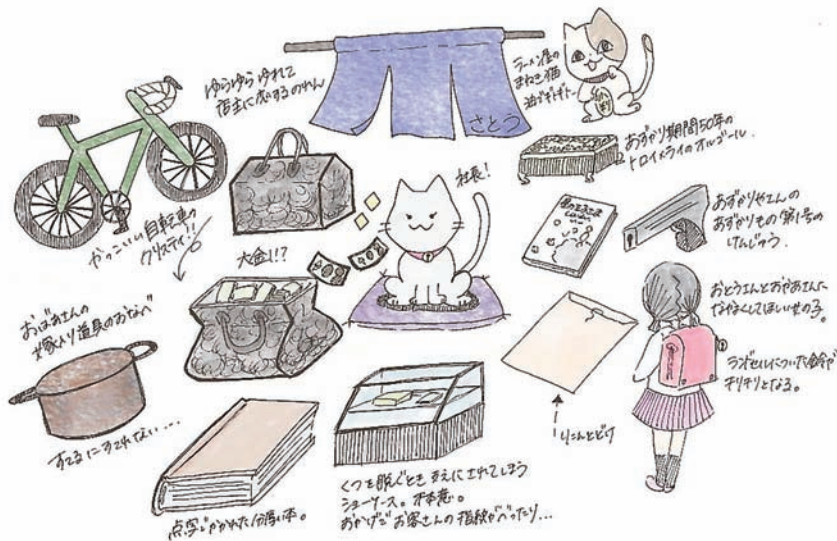 ゆらゆらゆれて
店主に恋するのれん
さとう
ラーメン屋の
まねき猫
油でギトギト…
おずかり期間50年の
トロイメライのオルゴール.
かっこいい自転車の
クリスティ!!
大金!!?
社長!
あずかりやさんの
あずかりもの第1号の
けんじゅう.
おばあさんの
嫁入り道具のおなべ
すてるにすてれない…
おとうさんとおかあさんに
なかよくしてほしい女の子。
ランドセルについた鈴が
チリチリとなる。
りこんとどけ
点字でかかれた分厚い本。
くつを脱ぐとき支えにされてしまう
ショーケース。不本意。
おかげでお客さんの指紋がべったり…